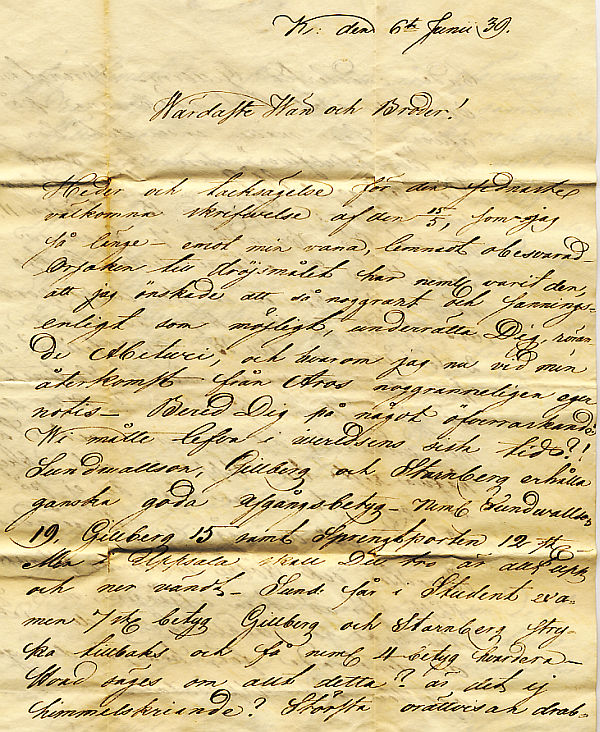 K: den 6te Junii 39.
Wärdaste Wän och Broder!
Heder och tacksägelse för din sednaste
välkomna skrifwelse af den 15/5, som jag
så länge – emot min vana, lemnadt obesvarad –
Orsaken till dröjsmålet har neml. varit den,
att jag önskade att så noggrant och sannings-
enligt som möjligt, underrätta Dig, röran-
de Abeturi, och hvarom jag nu vid min
återkomst från Aros noggranneligen eger
notis – Bered Dig på något öfverraskande
Wi måtte lefva i verldsens sista tid?!
Sundwallson, Gillberg och Starnberg erhålla
ganska goda afgångsbetyg – neml. Sundwallson
19. Gillberg 15 samt Sprengtporten 12 st.
Men i Uppsala skall Du tro är allt upp
och ner vändt – Sund. får i Student exa-
men 7 st. betyg Gillberg och Starnberg stry-
ka tillbaks och få neml. 4 betyg hvardera –
Hvad säges om allt detta? är det ej
himmelskriande? Största orättvisan drab-